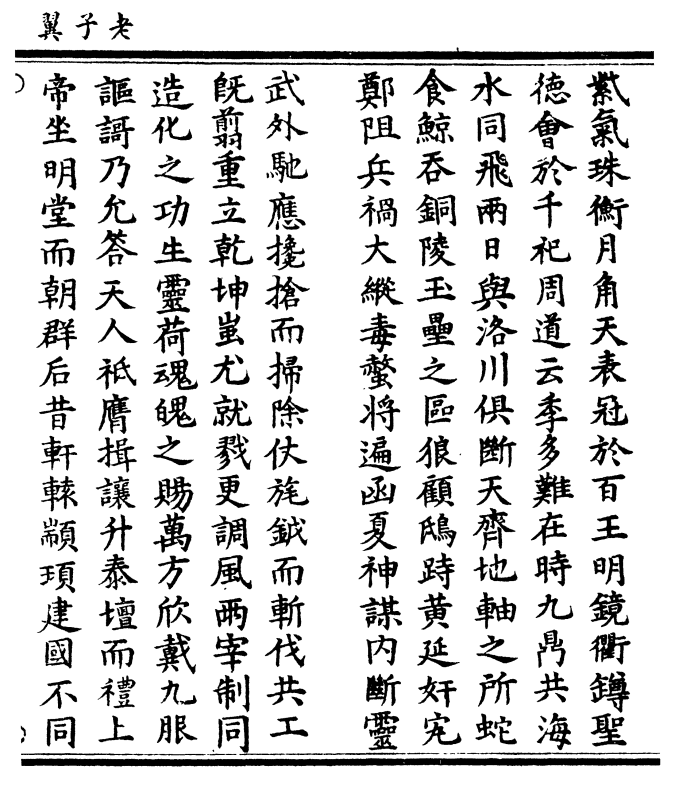 老子翼
紫氣珠衡月角天表冠於百王明鏡衢鐏聖
德會於千祀周道云季多難在時九鼎共海
水同飛兩日與洛川俱斷天齊地軸之所蛇
食鯨吞銅陵玉壘之區狼顧鴟跱黃延奸宄
鄭阻兵禍大縱毒螫將遍函夏神謀內斷靈
武外馳應攙搶而掃除仗旄鉞而斬伐共工
旣翦重立乾坤蚩尤就戮更調風雨宰制同
造化之功生靈荷魂魄之賜萬方欣戴九服
謳謌乃允答天人祗膺揖讓升泰壇而禮上
帝坐明堂而朝群后昔軒轅顓頊建國不同